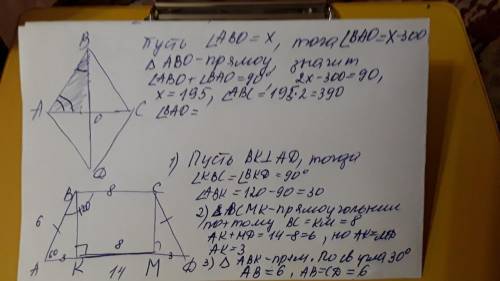 Пусть ∠ABO = x, тогда ∠BAO = x-300
△ ABO - прямоу, значит
∠ABO + ∠BAO = 90° 2x-300=90,
x = 195, ∠ABC = 195·2 = 390
∠BAO =
B
A
O
C
D
1) Пусть BK⊥AD, тогда
∠KBC = ∠BKD = 90°
∠ABK = 120-90=30
2) BCMK - прямоугольник
поэтому BC = KM = 8
AK + MD = 14-8=6, но AK=MD
AK = 3
3) △ ABK - прям. По св угла 30°
AB = 6, AB=CD=6
B
8
C
120
6
A
60
3
K
8
M
3
D
14